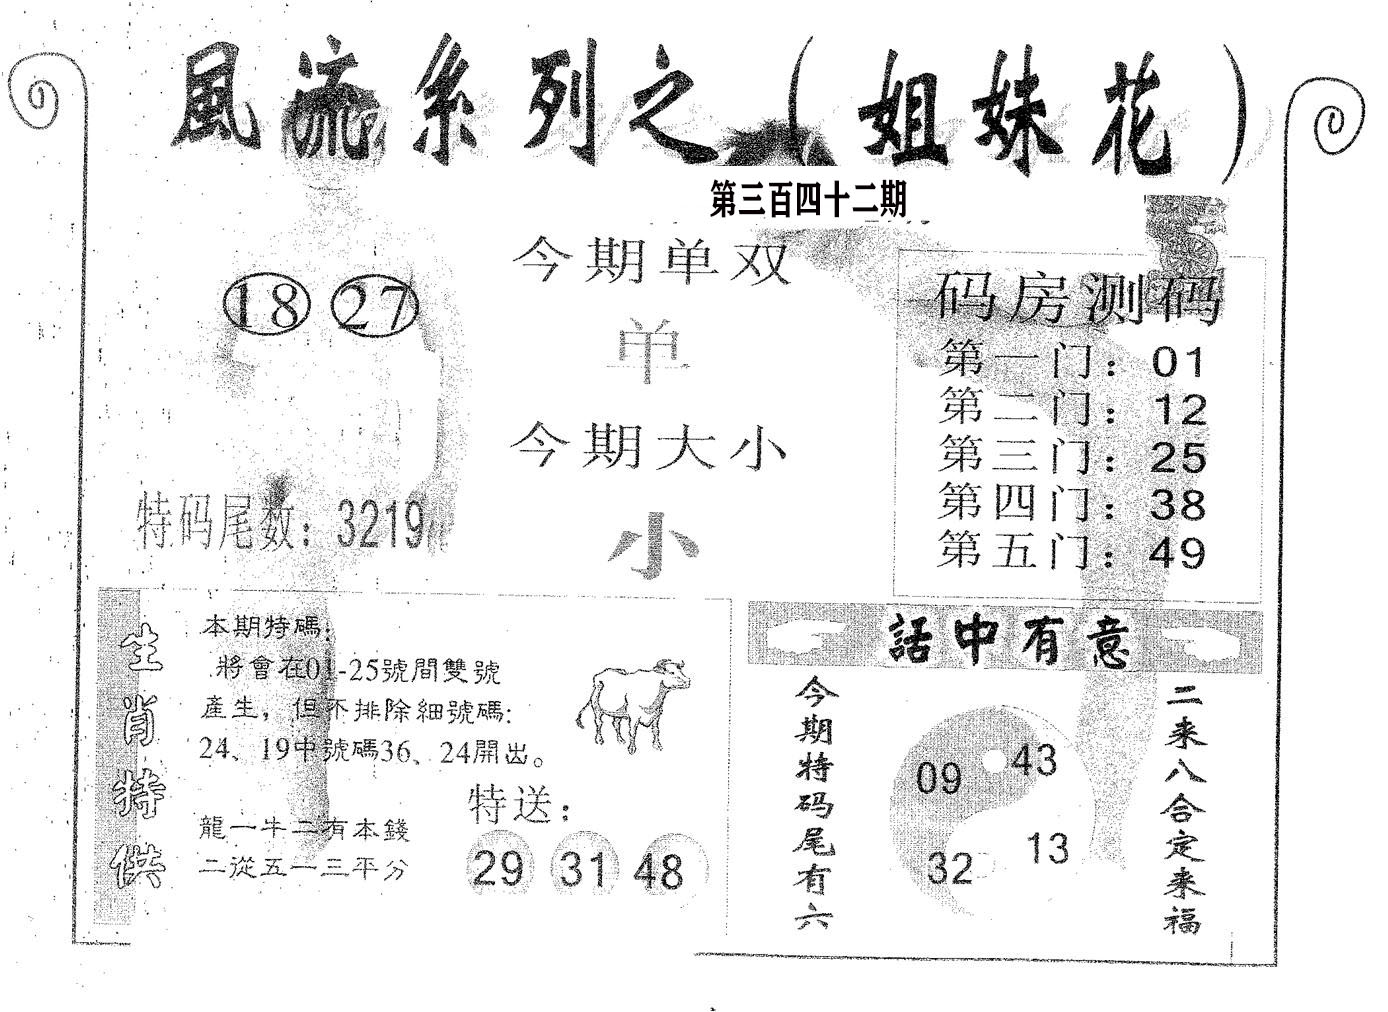 風流系列之（姐妹花）
第三百四十二期
18 27
今期单双
单
今期大小
小
特码尾数：3219
码房测码
第一门：01
第二门：12
第三门：25
第四门：38
第五门：49
生肖特供
本期特碼：
將會在01-25號間雙號
產生，但不排除細號碼：
24、19中號碼36、24開出。
龍一牛二有本錢
二從五一三平分
特送：
29 31 48
話中有意
今期特码尾有六
09 43
32 13
二来八合定来福